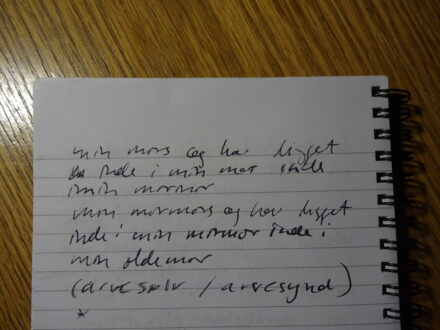 min mors æg har ligget
inde i min mor inde
i min mormor
min mormors æg har ligget
inde i min mormor inde i
min oldemor
(arvesølv / arvesynd)
*